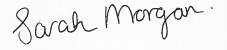 Sarah Morgan.